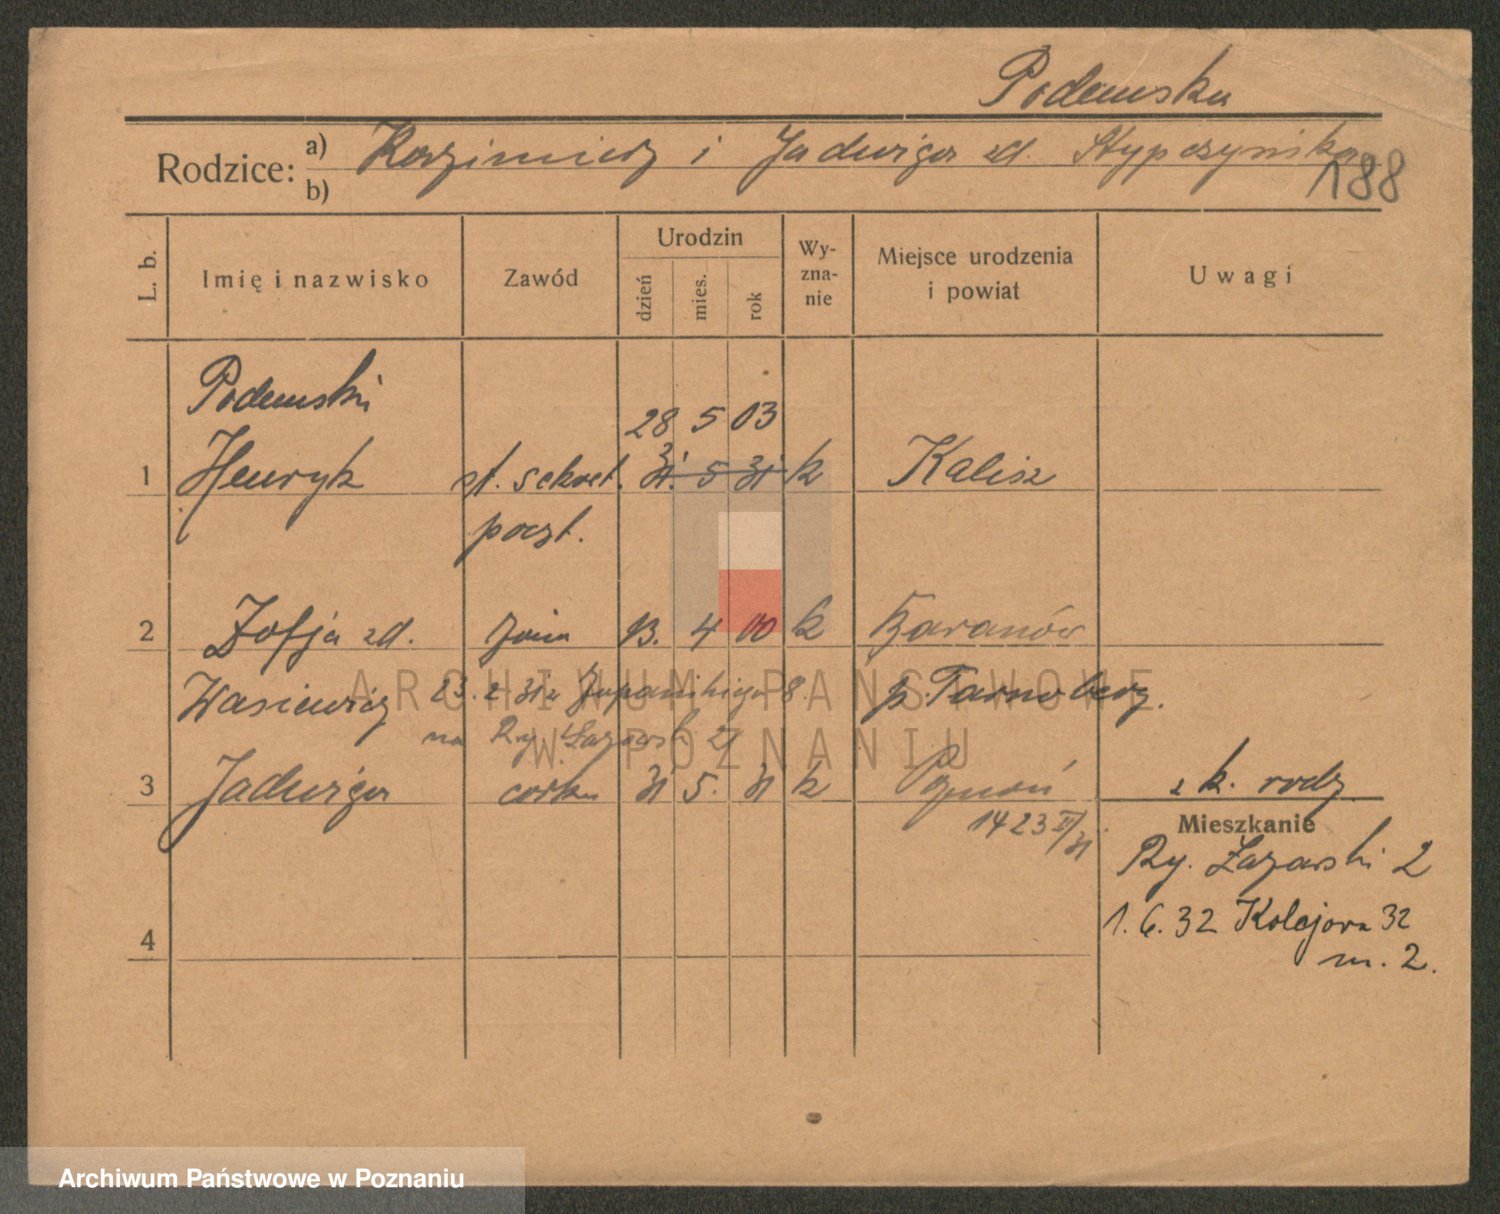 Podemska
Rodzice: a) Kazimierz i Jadwiga zd. Stypczyńska
b)
188
L. b.
Imię i nazwisko
Zawód
Urodzin
dzień
mies.
rok
Wy-
zna-
nie
Miejsce urodzenia
i powiat
Uwagi
Podemski
28 5 03
1 Henryk st. sekret. 31. 5 31 k Kalisz
poczt.
2 Zofja zd. żona 13. 4 00 k Baranów
Wasiewicz 23. 2 31 z Żupańskiego 8. p. Tarnobrzeg.
na Ry. Łazarski 2
3 Jadwiga córka 31 5. 31 k Poznań z k. rodz.
1423 /31
Mieszkanie
Ry. Łazarski 2
1. 6. 32 Kolejowa 32
m. 2.
4
ARCHIWUM PAŃSTWOWE
W POZNANIU
Archiwum Państwowe w Poznaniu